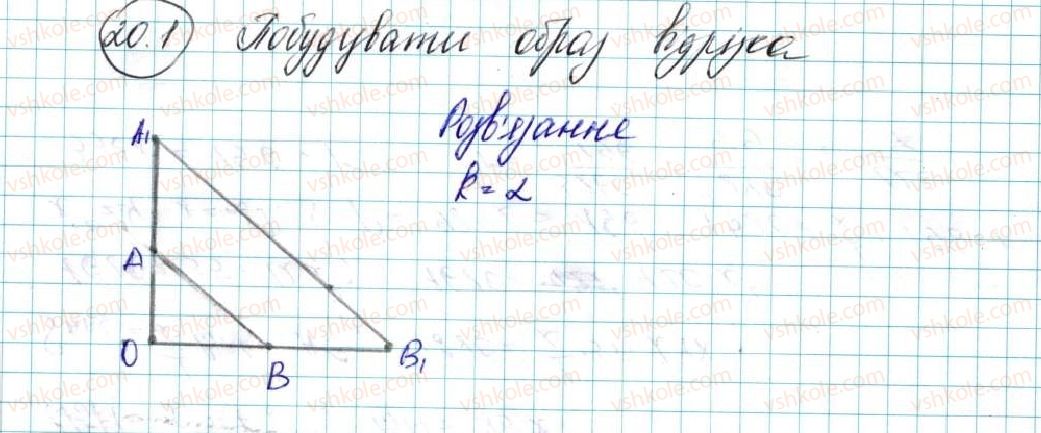 20.1 Побудувати образ відрізка
Розв'язання
k = 2
A₁
A
O
B
B₁